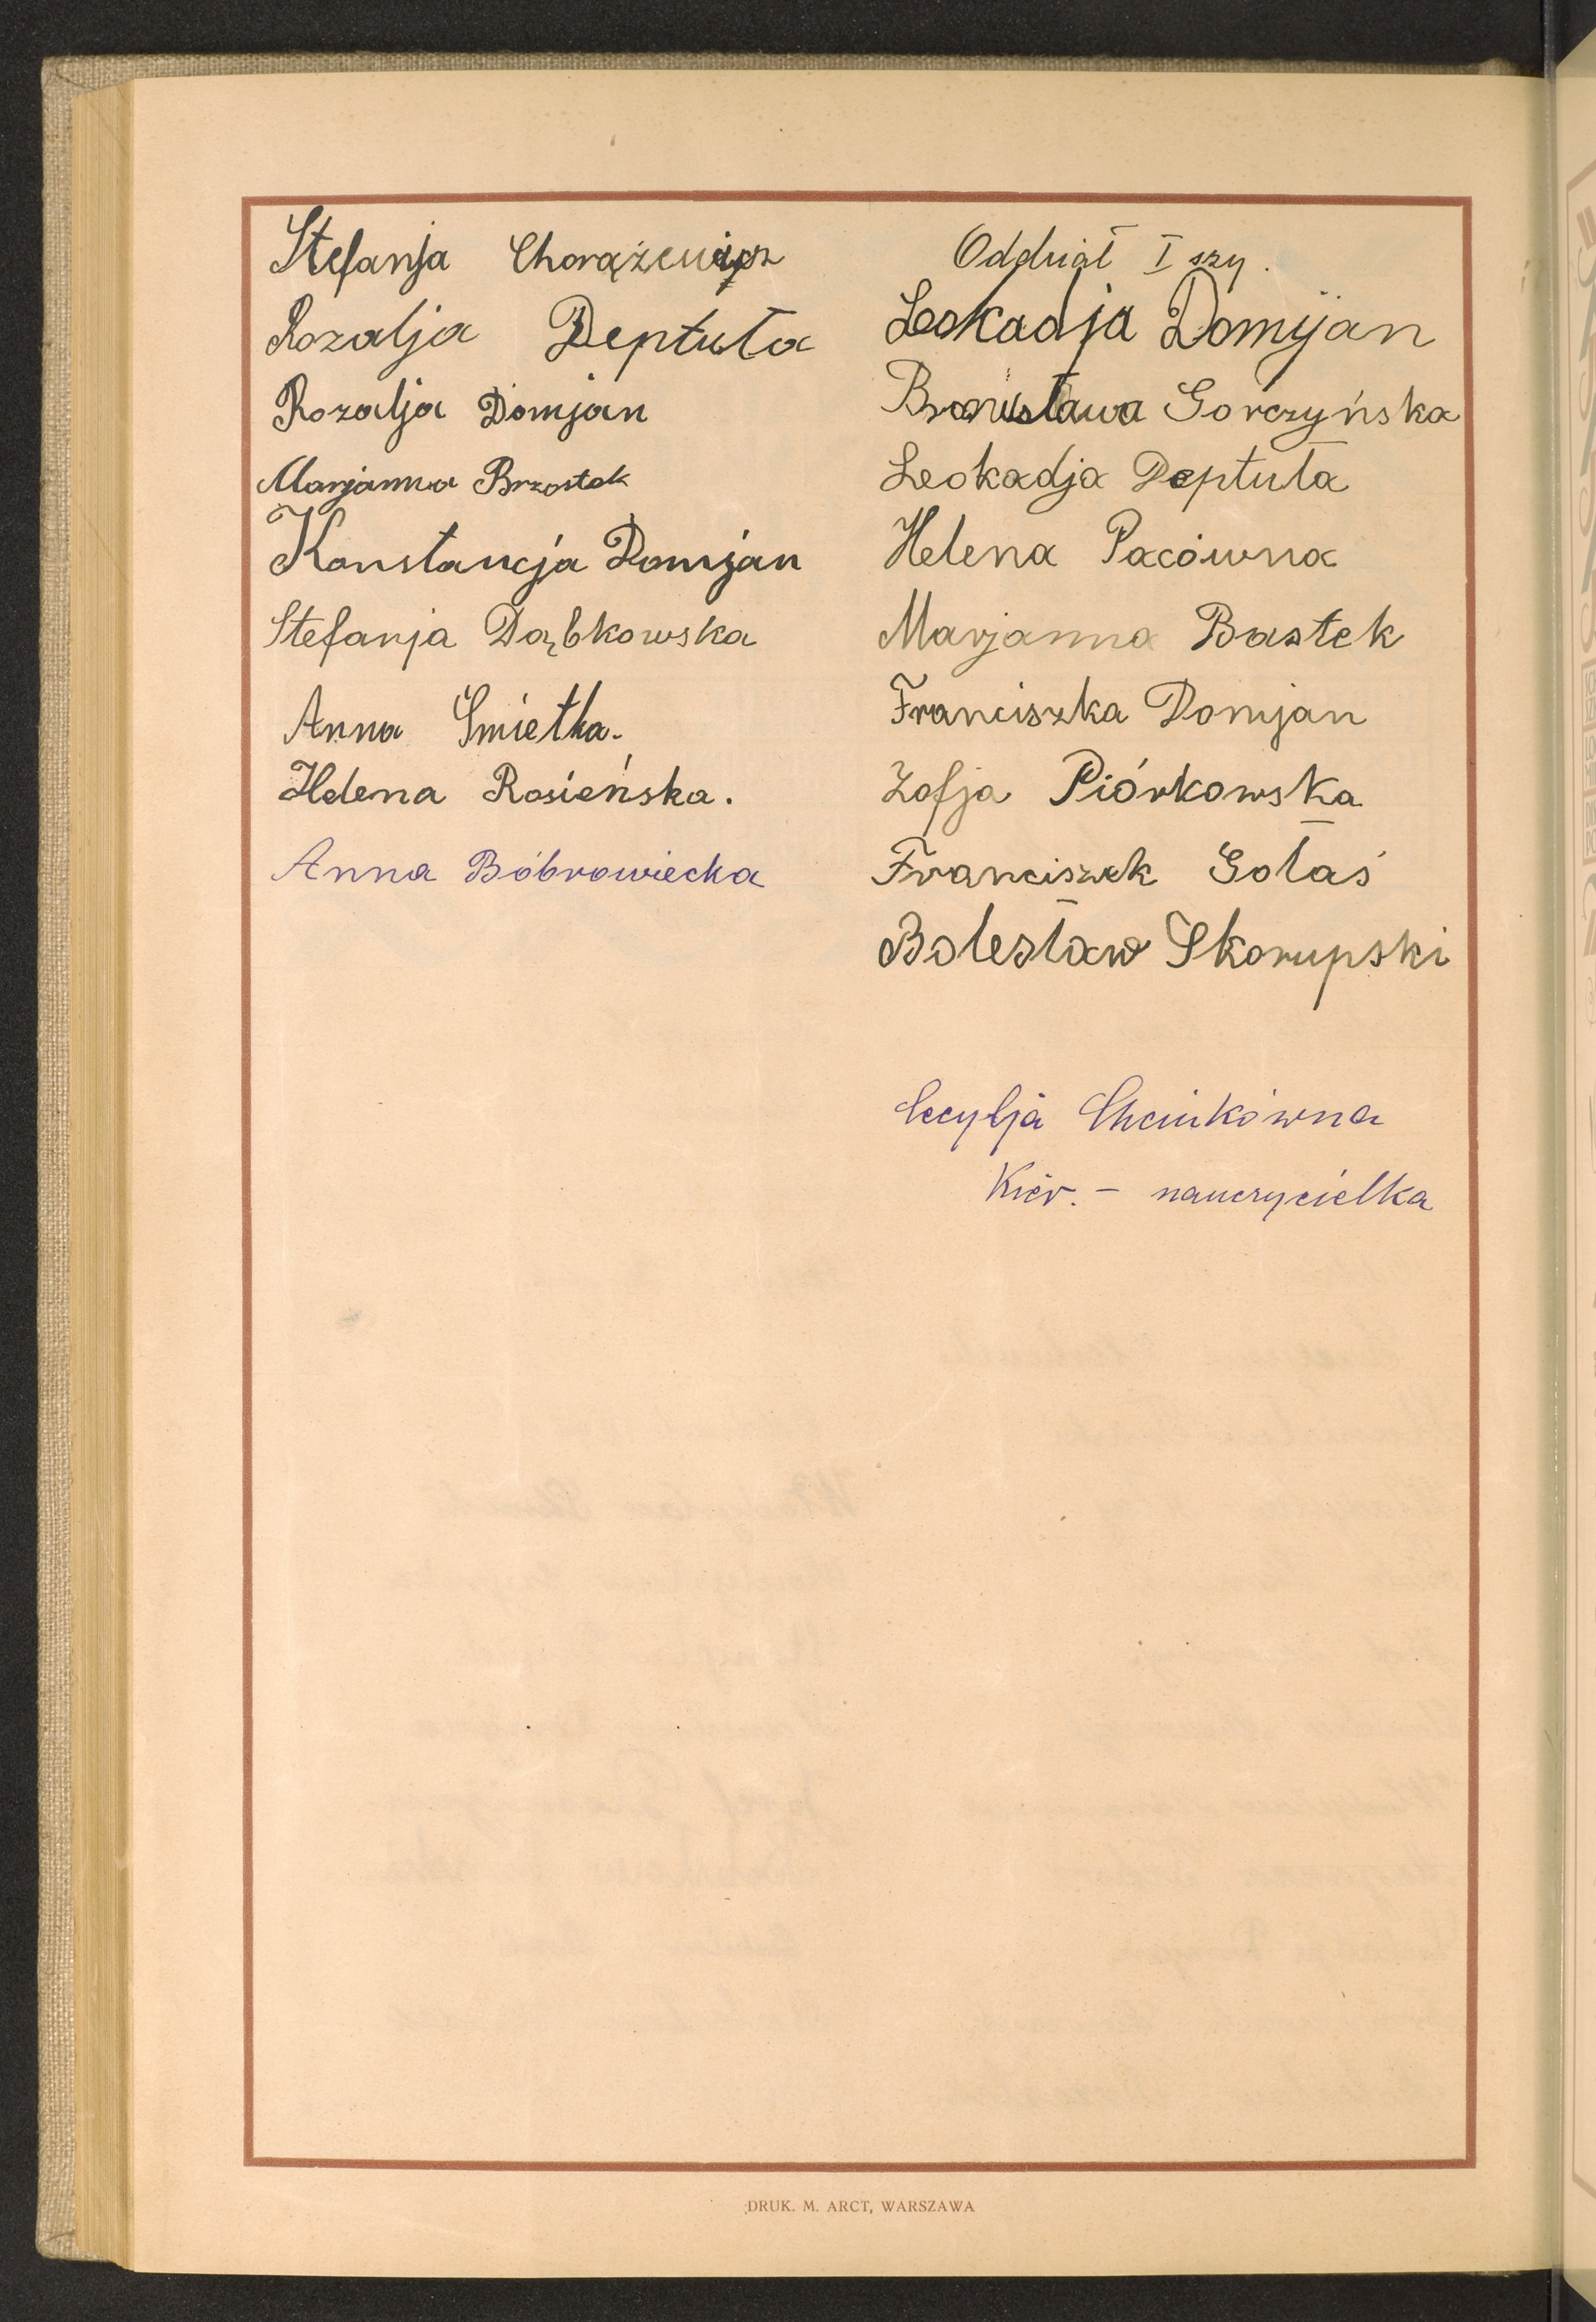 Stefanja Chorążewicz
Rozalja Deptuła
Rozalja Domjan
Marjanna Brzostek
Konstancja Domjan
Stefanja Dąbkowska
Anna Śmietka.
Helena Rosieńska.
Anna Bóbrowiecka
Oddział I szy.
Leokadja Domijan
Bronisława Gorczyńska
Leokadja Deptuła
Helena Pacówna
Marjanna Bastek
Franciszka Domjan
Zofja Piórkowska
Franciszek Gołaś
Bolesław Skorupski
Cecylja
Kier. - nauczycielka
DRUK. M. ARCT, WARSZAWA